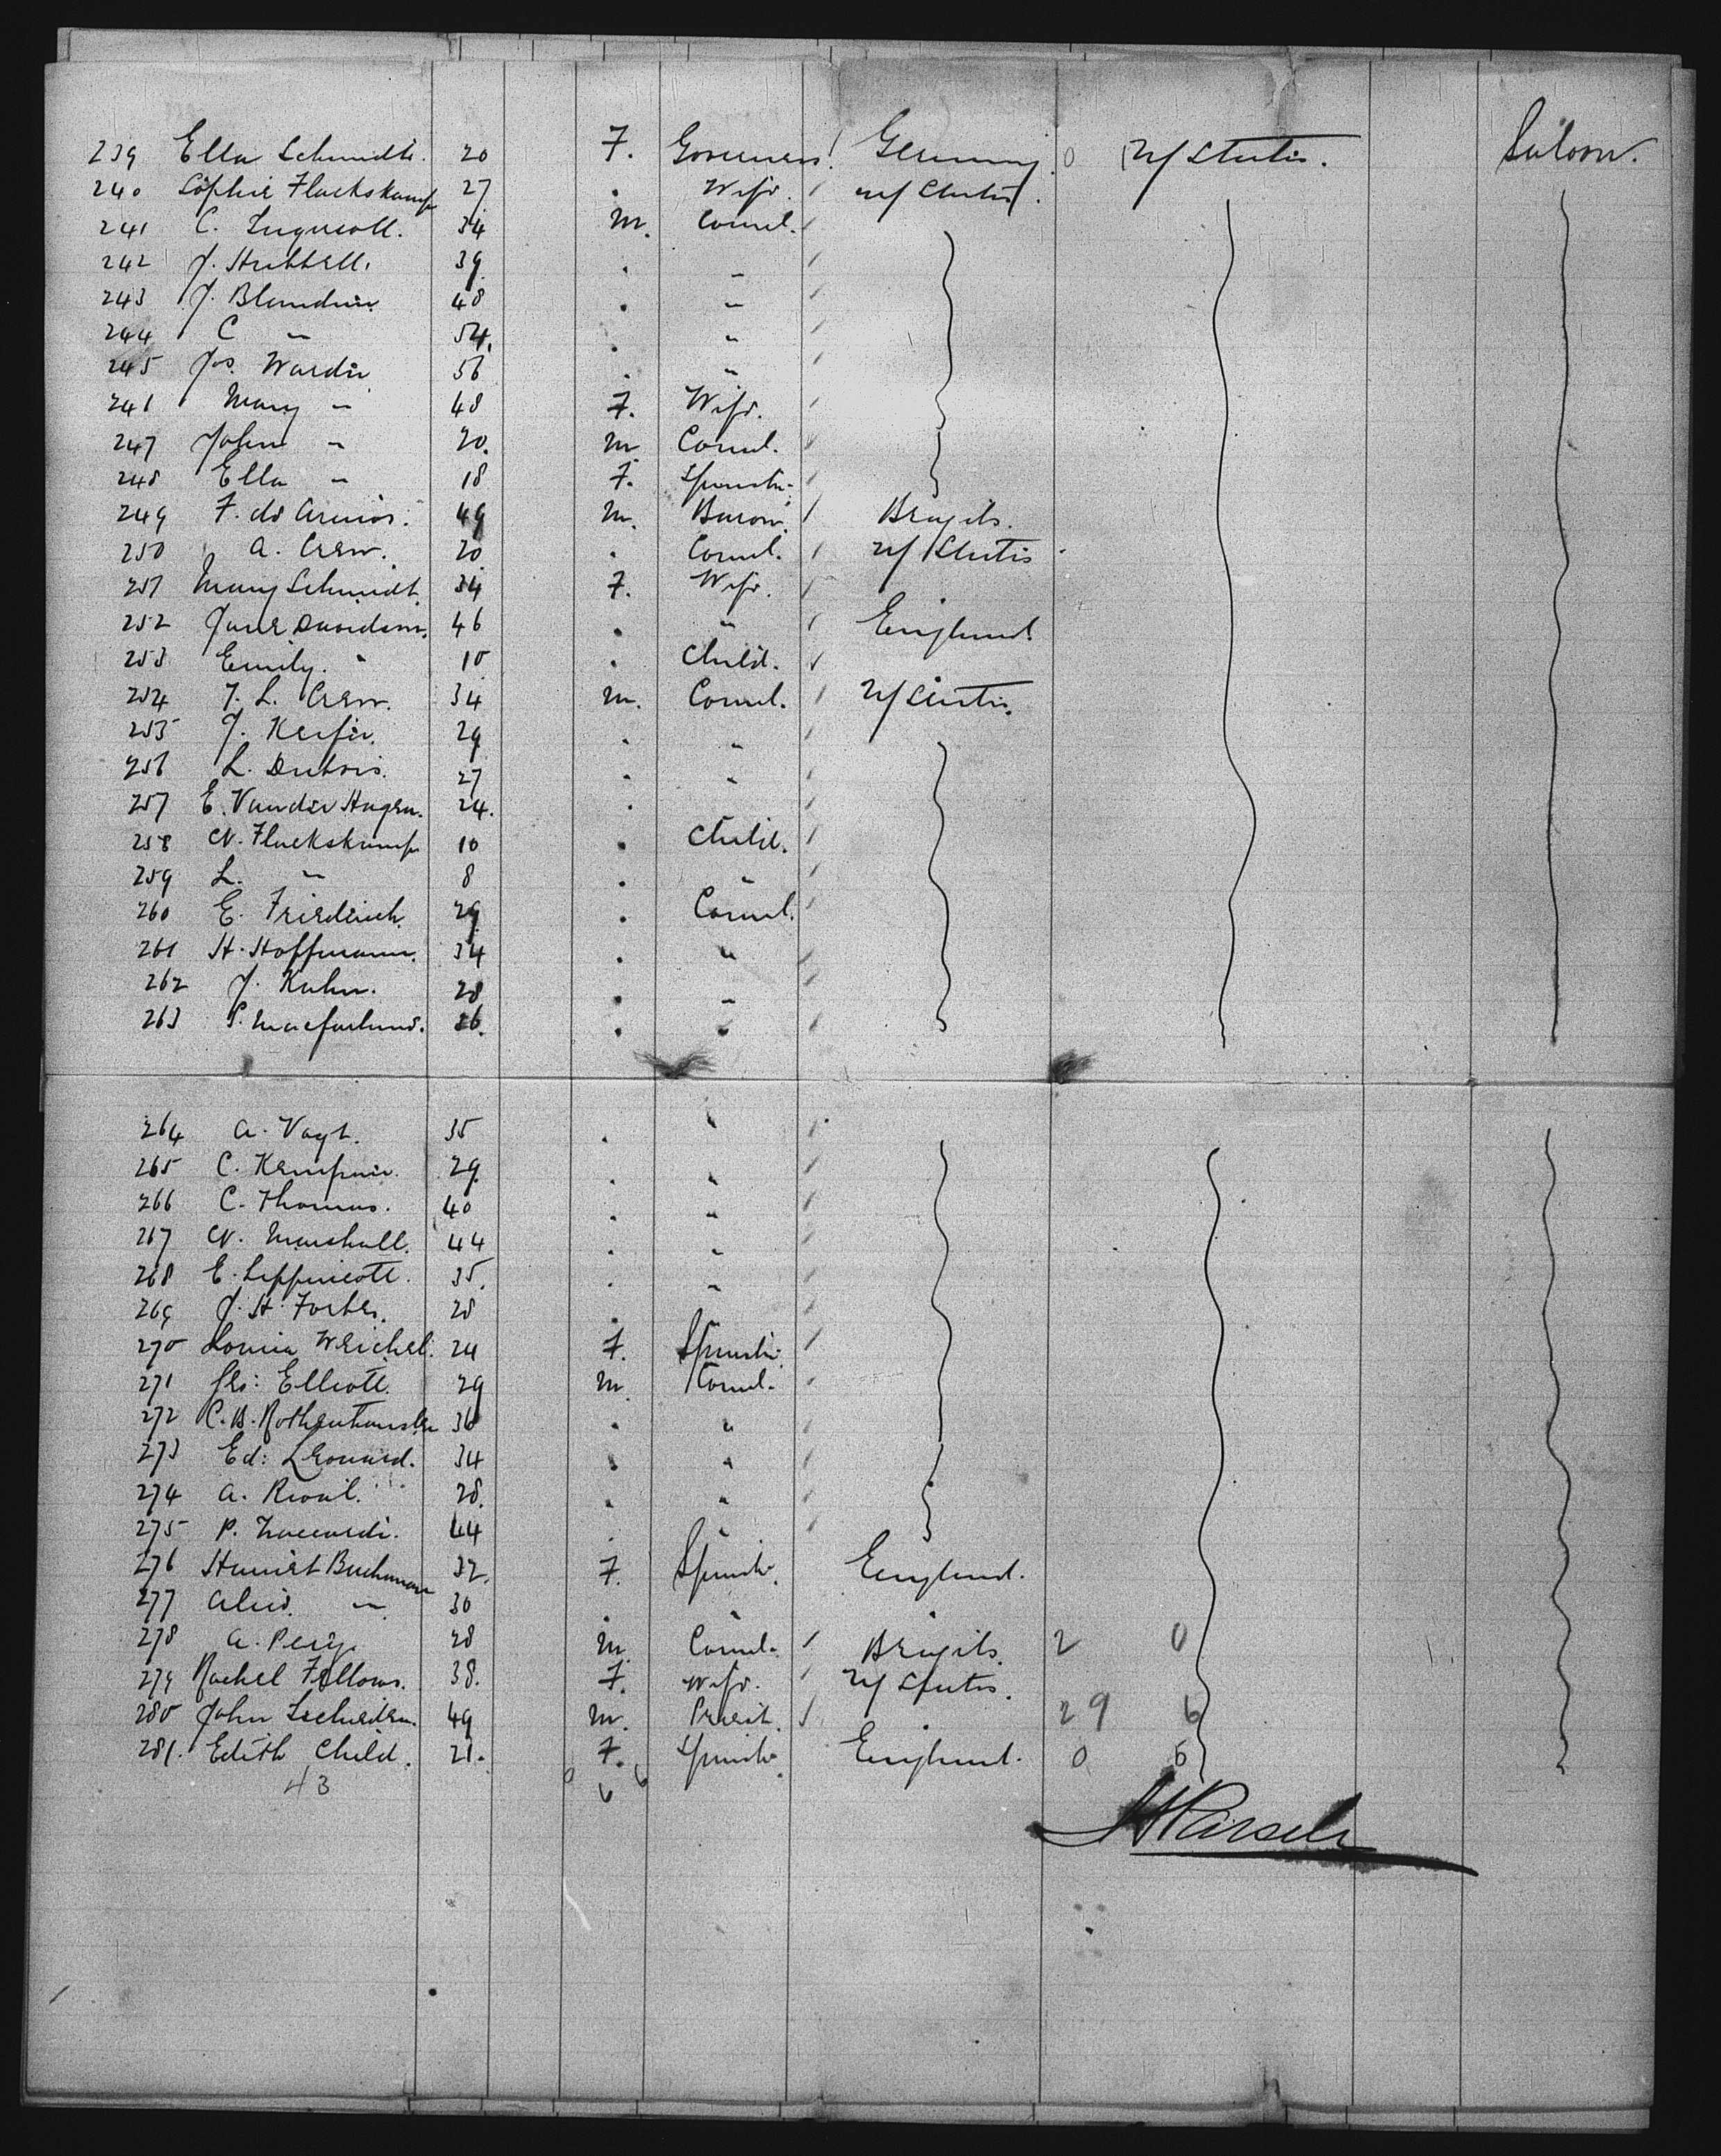 239 Ella Schmidt. 20 F. Governess Germany 0 U/States. Saloon.
240 Sophie Fluckskamp 27 " Wife. U/States.
241 C. Ingersoll. 34 M. Coml.
242 J. Hubbell. 39 " "
243 J. Blandin. 48 " "
244 C " 54. " "
245 Jos. Warder 56 " "
246 Mary " 48 F. Wife.
247 John " 20. M Coml.
248 Ella " 18 F. Spinster
249 F. de 49 M. Baron. Brazils.
250 A. Crew. 20 " Coml. U/States
251 Mary Schmidt. 34 F. Wife.
252 Jane Davidson. 46 " " England.
253 Emily. " 10 " Child.
254 J. L. Crew. 34 M. Coml. U/States.
255 J. 29 " "
256 L. Dubois. 27 " "
257 E. Vander Hagen. 24. " "
258 W. Fluckskamp 10 " Child.
259 L. " 8 " "
260 E. Friedrich. 29 " Coml.
261 H. Hoffmann. 34 " "
262 J. Kuhn. 28 " "
263 S. Macfarland. 26. " "
264 A. Vogt. 35 " "
265 C. 29. " "
266 C. Thomas. 40 " "
267 W. Marshall. 44 " "
268 E. Lippincott. 35. " "
269 J. H. Forbes. 28 " "
270 Louisa Weichel. 24 F. Spinster.
271 Elliott. 29 M. Coml.
272 C. B. 36 " "
273 Ed: Leonard. 34 " "
274 A. 28. " "
275 P. Zuccardi. 44 " "
276 Harriet Buchanan 32. F. Spinster. England.
277 Alice. " 30 " "
278 A. 28 M. Coml. Brazils. 2 0
279 Rachel Fellows. 38. F. Wife. U/States.
280 John 49 M. Priest. 29 6
281. Edith Child. 21. F. Spinster. England. 0 6
43 0 6 6